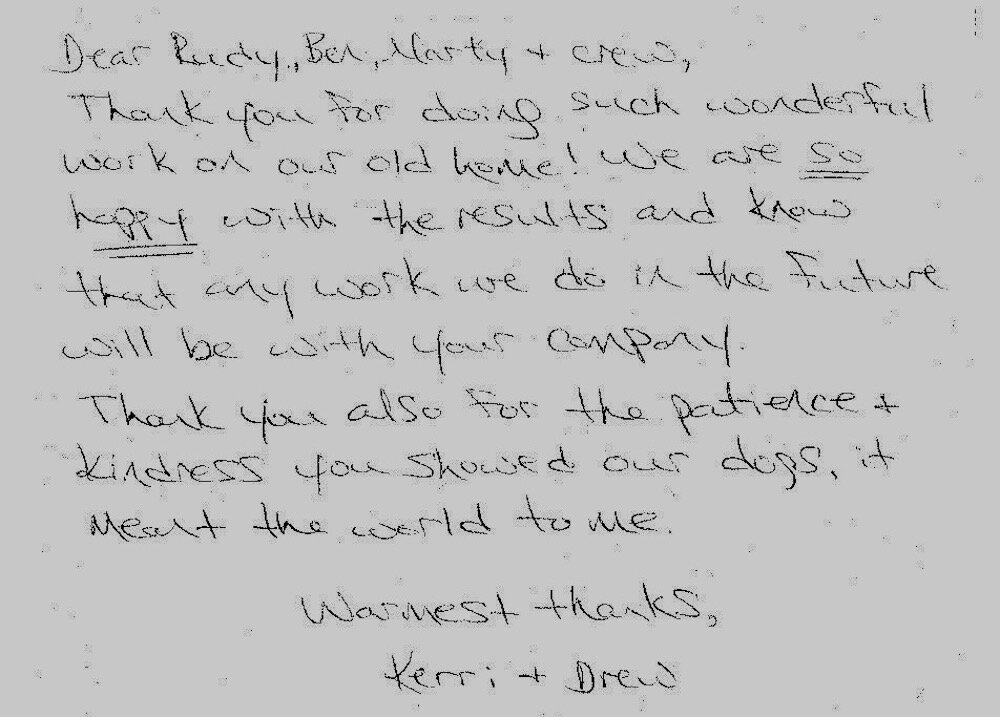 Dear Rudy, Ben, Marty + crew,
Thank you for doing such wonderful
work on our old home! We are so
happy with the results and know
that any work we do in the future
will be with your company.
Thank you also for the patience +
kindness you showed our dogs, it
meant the world to me.
Warmest thanks,
Kerri + Drew